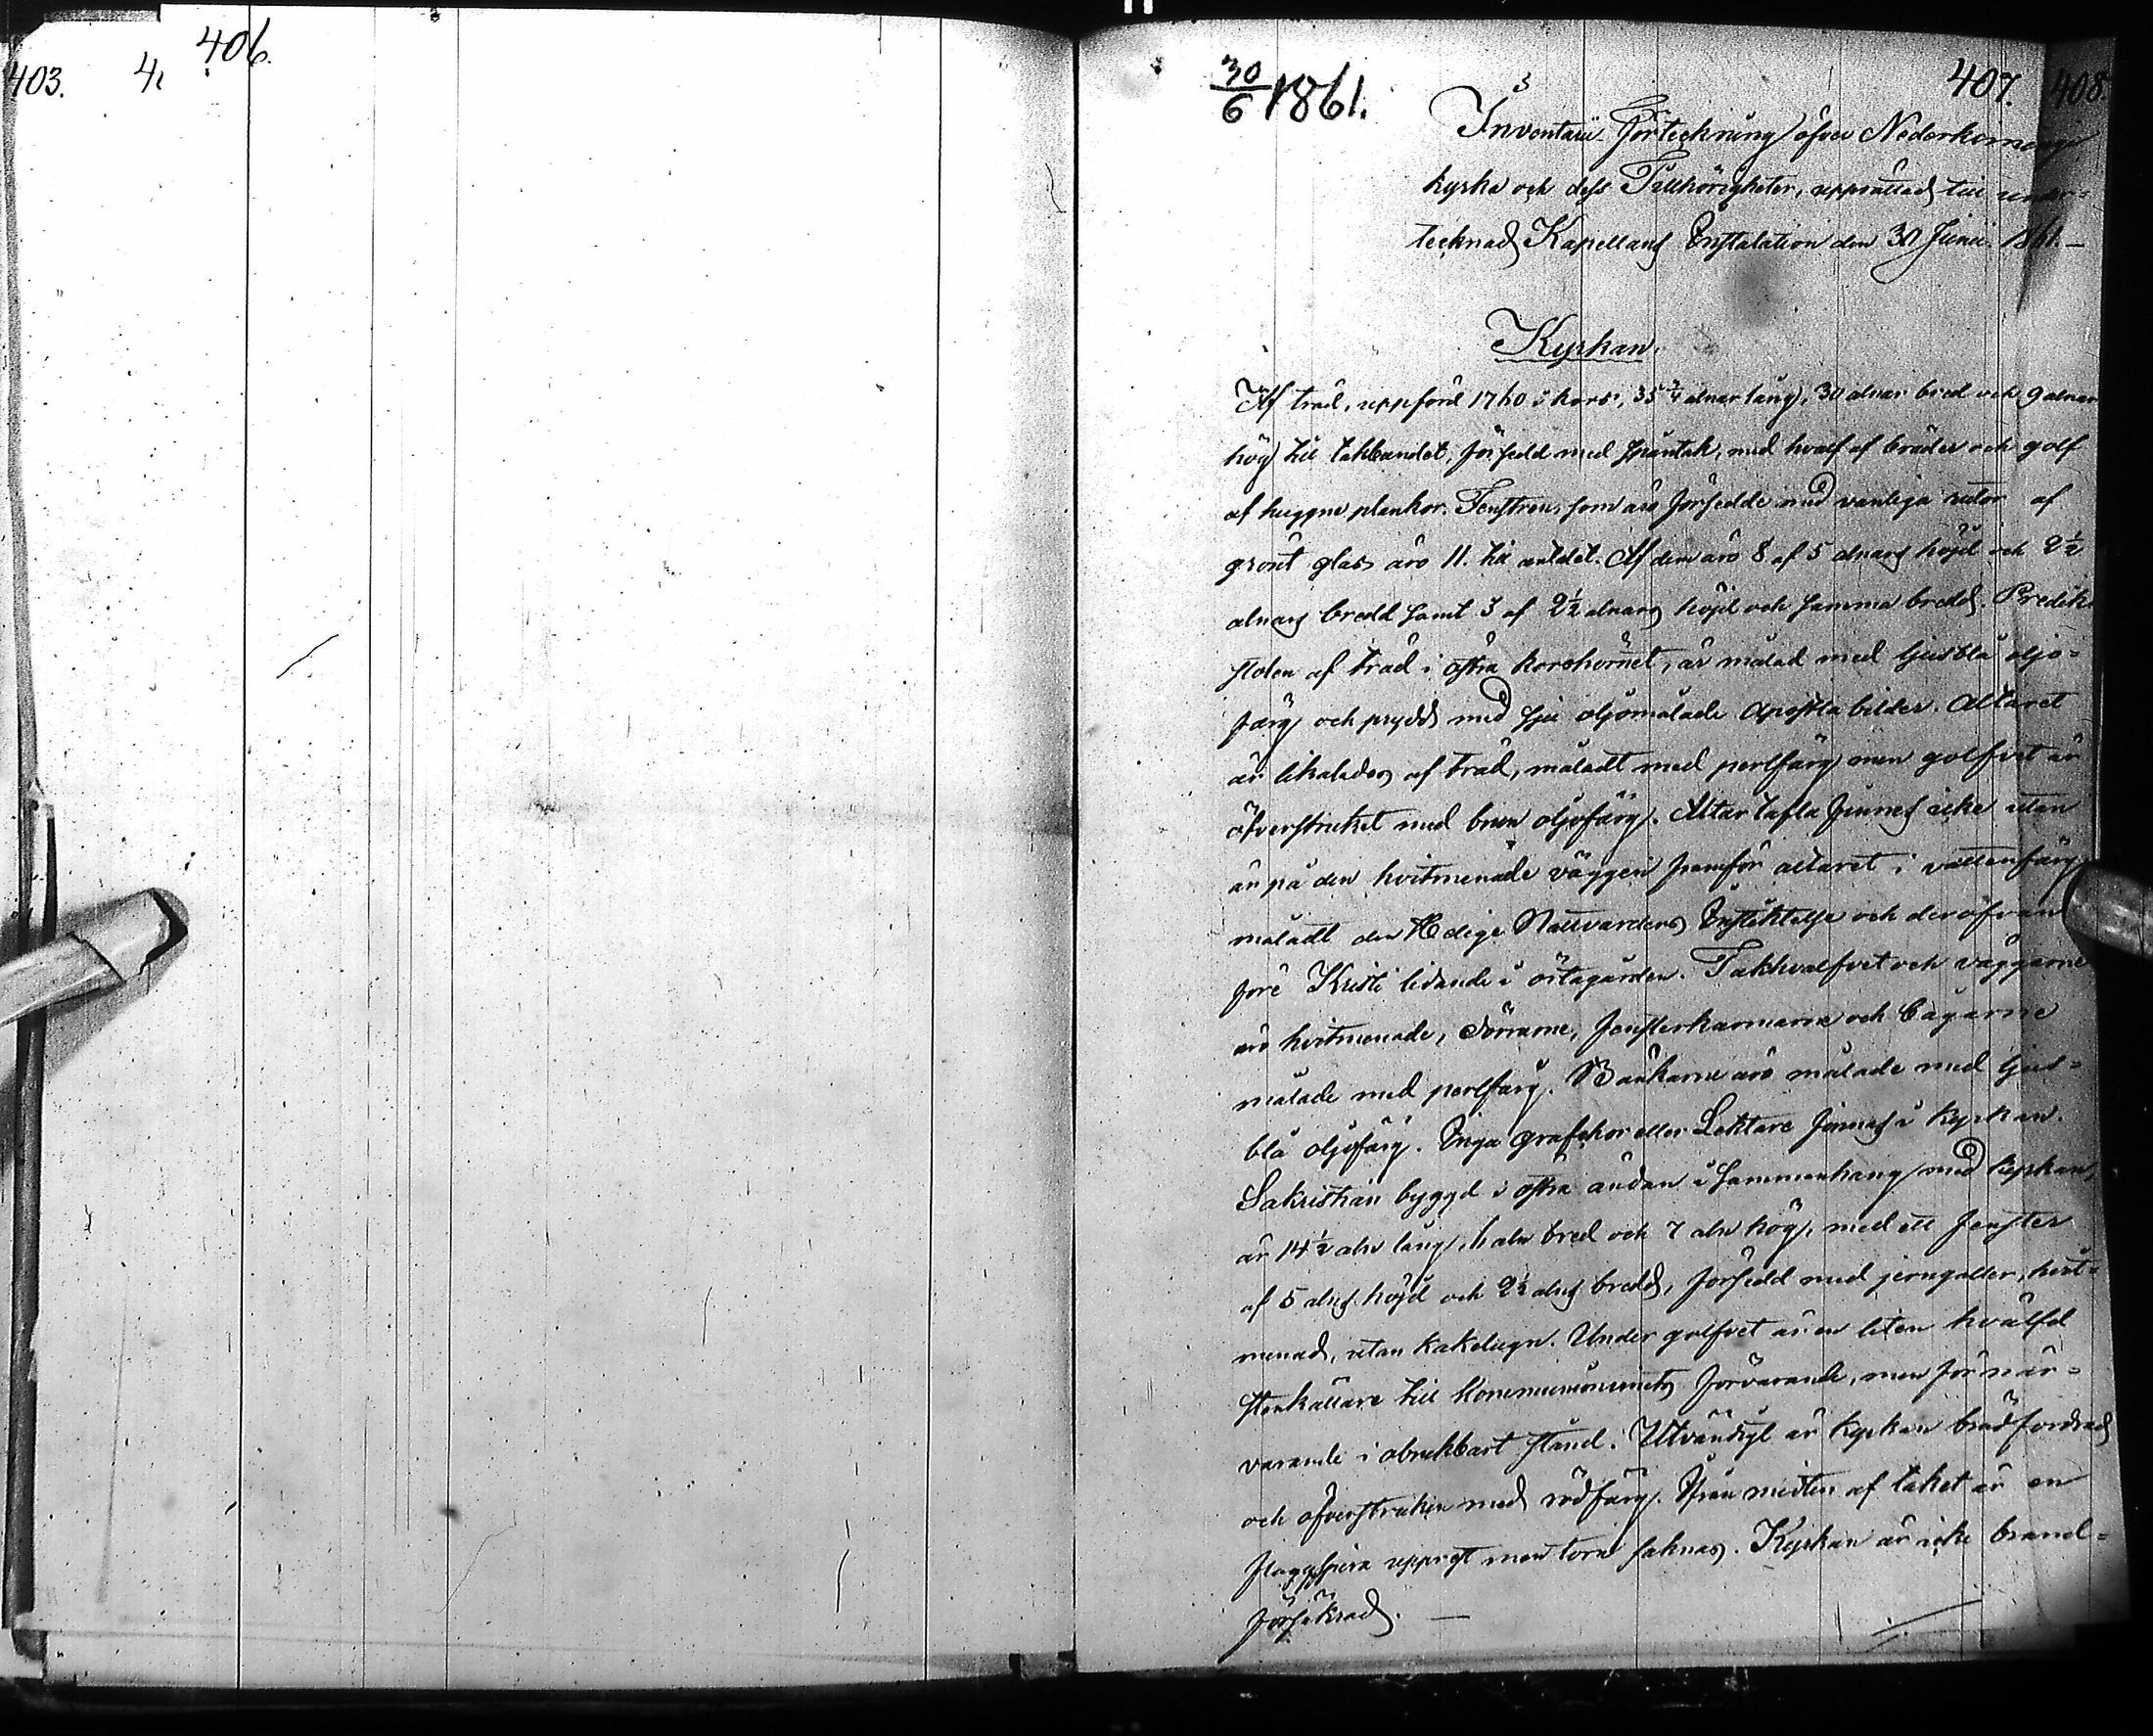 403.
406.
30/6 1861.
407.
408.
Inventarii Förteckning öfver Nederkorsnäs
kyrka och dess Tillhörigheter, upprättad till under-
tecknads Kapellans Installation den 30 Junii 1861.
Kyrkan.
Af träd, uppförd 1760 i kors, 35 3/4 alnar lång, 30 alnar bred och 9 alnar
hög till takbandet, försedd med spåntak, med hvalf af bräder och golf
af huggne plankor. Fenstren, som äro försedde med vanliga rutor af
grönt glas äro 11. till antalet. Af dem äro 8 af 5 alnars höjd och 2 1/2
alnars bredd samt 3 af 2 1/2 alnars höjd och samma bredd. Predik-
stolen af träd i östra korshörnet, är målad med ljusblå oljo-
färg och prydd med sju oljomålade Apostla bilder. Altaret
är likaledes af träd, måladt med perlfärg men golfvet är
öfverstruket med brun oljofärg. Altar tafla finnes icke utan
är på den hvitmenade väggen framför altaret i vattenfärg
måladt den Helige Nattvardens Instiktelse och deröfvan
före Kristi lidande i örtagården. Takhvalfvet och väggarne
äro hvitmenade, dörrarne, fensterkarmarne och bågarne
målade med perlfärg. Bänkarne äro målade med ljus-
blå oljofärg. Inga grafchor eller Lektare finnas i kyrkan.
Sakristian byggd i östra ändan i sammanhang med kyrkan,
är 14 1/2 aln lång, aln bred och 7 aln hög, med ett fenster
af 5 alns höjd och 2 1/2 alns bredd, försedd med jerngaller, hvit-
menad, utan kakelugn. Under golfvet är en liten hvälfd
stenkällare till Kommunionvinets förvarande, men för när-
varande i obrukbart stånd. Utvändigt är kyrkan brädfordrad
och öfverstruken med rödfärg. Ifrån midten af taket är en
flaggspira upprest men torn saknas. Kyrkan är icke brand-
försäkrad. —